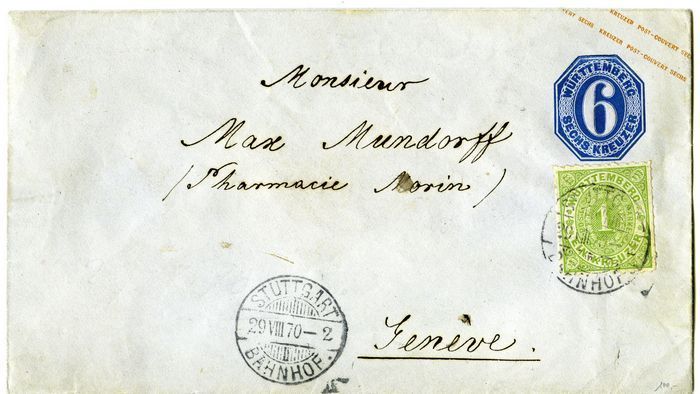 KREUZER POST-COUVERT SEC
VERT SECHS KREUZER POST-COUVERT SECHS
WÜRTTEMBERG
6
SECHS KREUZER
Monsieur
Max Mundorff
(Pharmacie Morin)
WÜRTTEMBERG
1
KREUZER
BAHNHOF
STUTTGART
29 VIII 70 - 2
BAHNHOF.
Genève.
100,-